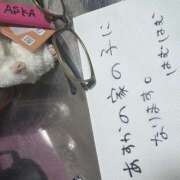 ASKA
あすかの家の子に
なります。
はむはむ